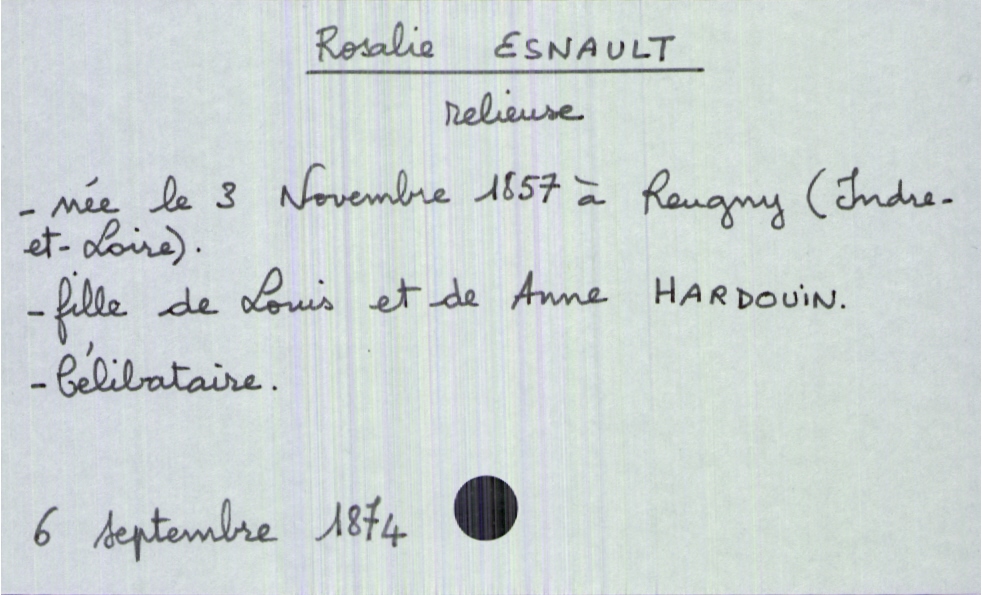 Rosalie ESNAULT
relieuse
- née le 3 Novembre 1857 à Reugny (Indre-
et-Loire).
- fille de Louis et de Anne HARDOUIN.
- Célibataire.
6 septembre 1874